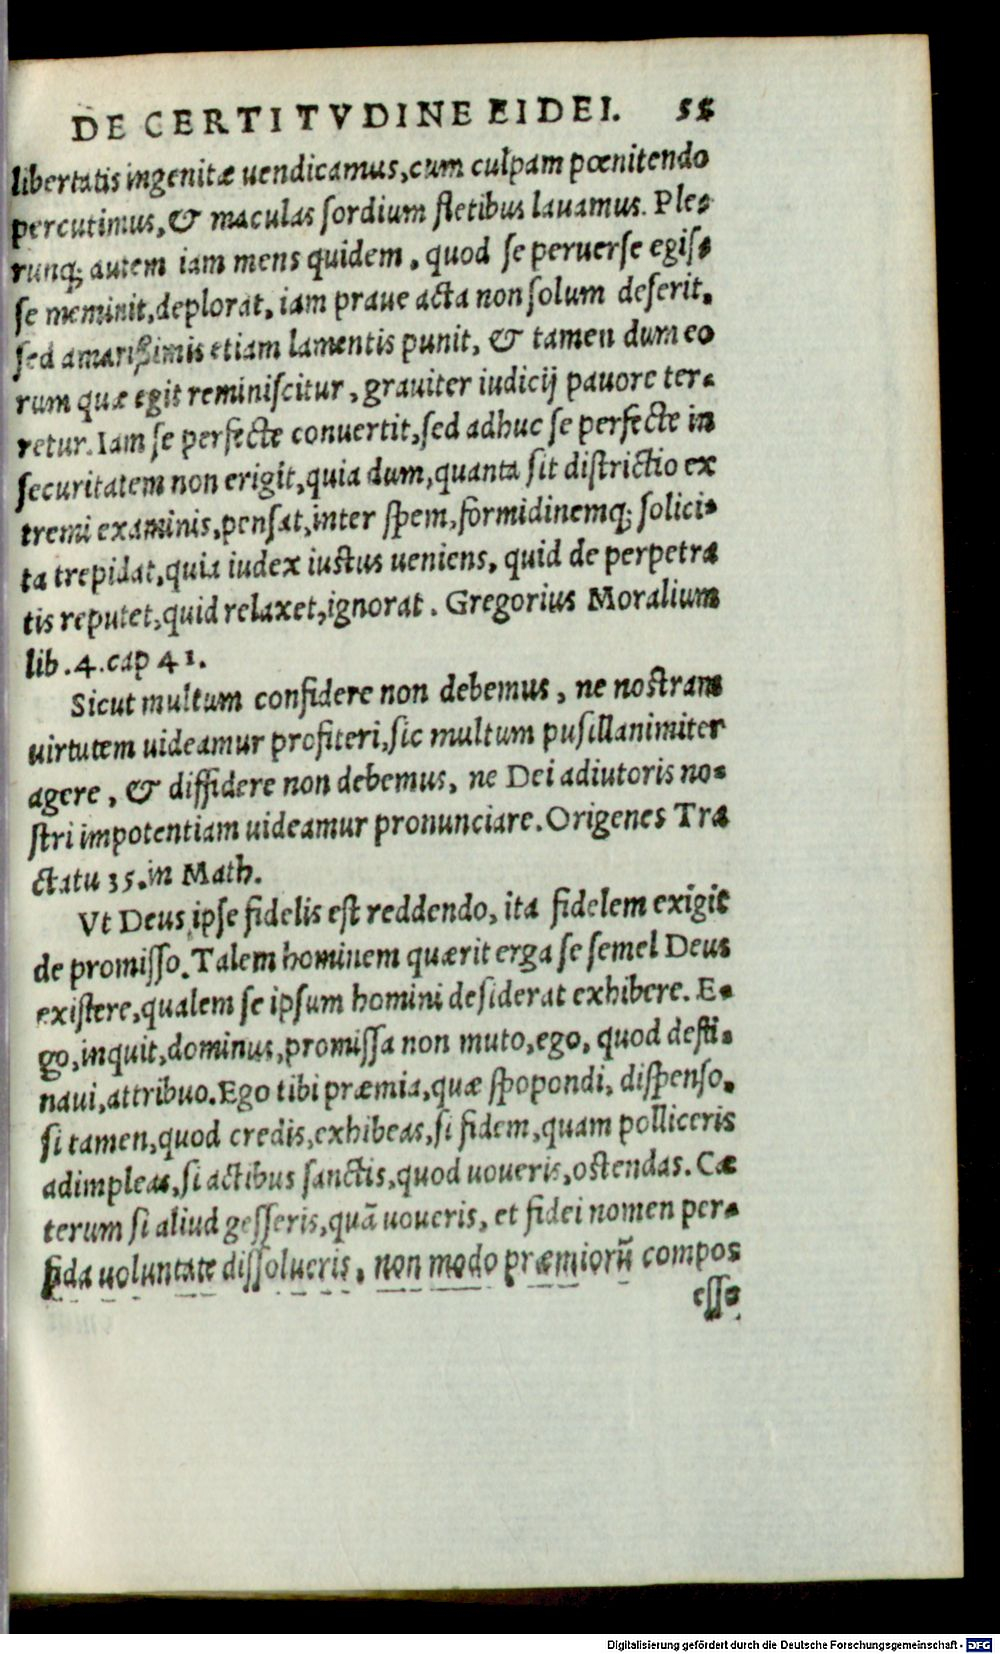 DE CERTITVDINE EIDEI. 55
libertatis ingenitæ uendicamus, cum culpam pœnitendo
percutimus, & maculas ſordium fletibus lauamus. Ple-
runq; autem iam mens quidem, quod ſe peruerſe egiſ-
ſe meminit, deplorat, iam praue acta non ſolum deſerit,
ſed amarißimis etiam lamentis punit, & tamen dum eo
rum quæ egit reminiſcitur, grauiter iudicij pauore ter-
retur. Iam ſe perfecte conuertit, ſed adhuc ſe perfecte in
ſecuritatem non erigit, quia dum, quanta ſit diſtrictio ex
tremi examinis, penſat, inter ſpem, formidinemq; ſolici-
ta trepidat, quia iudex iuſtus ueniens, quid de perpetra
tis reputet, quid relaxet, ignorat. Gregorius Moralium
lib. 4. cap 41.
Sicut multum confidere non debemus, ne noſtram
uirtutem uideamur profiteri, ſic multum puſillanimiter
agere, & diffidere non debemus, ne Dei adiutoris no-
ſtri impotentiam uideamur pronunciare. Origenes Tra
ctatu 35. in Math.
Vt Deus ipſe fidelis eſt reddendo, ita fidelem exigit
de promiſſo. Talem hominem quærit erga ſe ſemel Deus
exiſtere, qualem ſe ipſum homini deſiderat exhibere. E-
go, inquit, dominus, promiſſa non muto, ego, quod deſti-
naui, attribuo. Ego tibi præmia, quæ ſpopondi, diſpenſo.
ſi tamen, quod credis, exhibeas, ſi fidem, quam polliceris
adimpleas, ſi actibus ſanctis, quod uoueris, oſtendas. Cæ
terum ſi aliud geſſeris, quã uoueris, et fidei nomen per-
fida uoluntate diſſolueris, non modo præmiorũ compos
eſſe
Digitalisierung gefördert durch die Deutsche Forschungsgemeinschaft - DFG